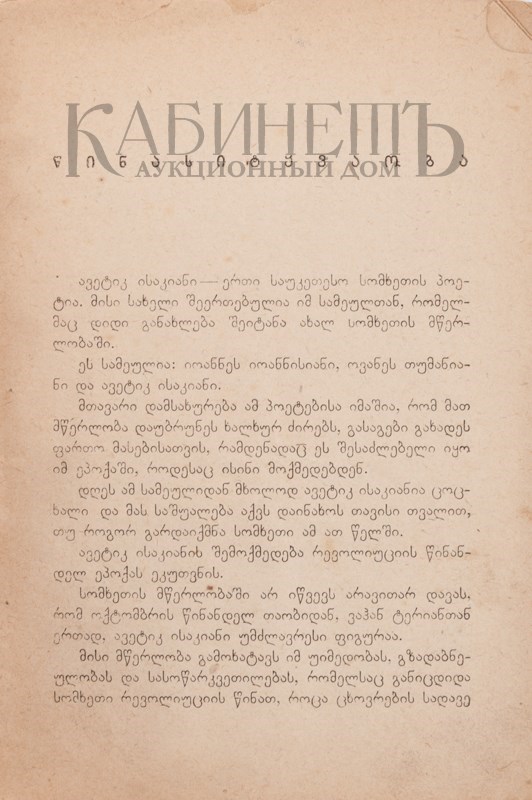 КАБИНЕТЪ
АУКЦИОННЫЙ ДОМ
წინასიტყვაობა
ავეტიკ ისაკიანი — ერთი საუკეთესო სომხეთის პოე-
ტია. მისი სახელი შეერთებულია იმ სამეულთან, რომელ-
მაც დიდი განახლება შეიტანა ახალ სომხეთის მწერ-
ლობაში.
ეს სამეულია: იოანნეს იოანნისიანი, ოვანეს თუმანია-
ნი და ავეტიკ ისაკიანი.
მთავარი დამსახურება ამ პოეტებისა იმაშია, რომ მათ
მწერლობა დაუბრუნეს ხალხურ ძირებს, გასაგები გახადეს
ფართო მასებისათვის, რამდენადაც ეს შესაძლებელი იყო
იმ ეპოქაში, როდესაც ისინი მოქმედებდენ.
დღეს ამ სამეულიდან მხოლოდ ავეტიკ ისაკიანია ცოც-
ხალი და მას საშუალება აქვს დაინახოს თავისი თვალით,
თუ როგორ გარდაიქმნა სომხეთი ამ ათ წელში.
ავეტიკ ისაკიანის შემოქმედება რევოლიუციის წინან-
დელ ეპოქას ეკუთვნის.
სომხეთის მწერლობაში არ იწვევს არავითარ დავას,
რომ ოქტომბრის წინანდელ თაობიდან, ვაჰან ტერიანთან
ერთად, ავეტიკ ისაკიანი უმძლავრესი ფიგურაა.
მისი მწერლობა გამოხატავს იმ უიმედობას, გზადაბნე-
ულობას და სასოწარკვეთილებას, რომელსაც განიცდიდა
სომხეთი რევოლიუციის წინათ, როცა ცხოვრების სადავე